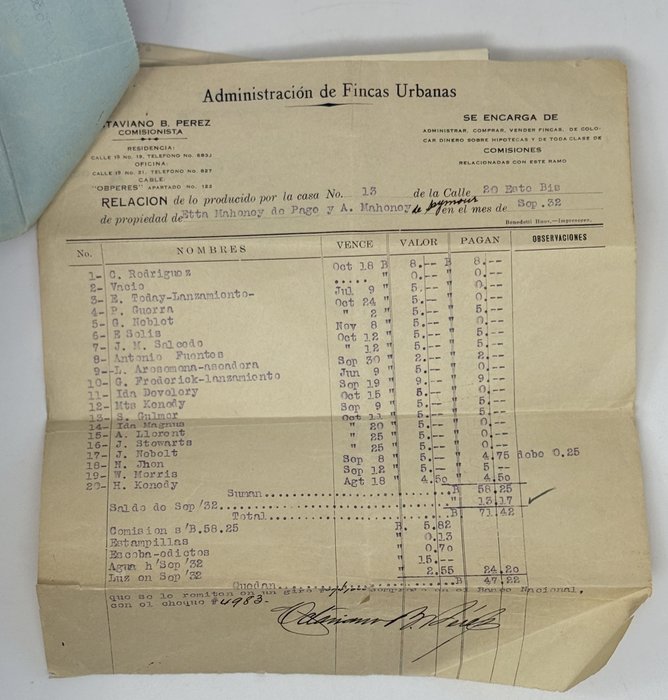 Administración de Fincas Urbanas
TAVIANO B. PEREZ
COMISIONISTA
RESIDENCIA:
CALLE 19 No. 19, TELEFONO No. 683J
OFICINA:
CALLE 19 No. 21, TELEFONO No. 827
CABLE:
"OBPERES" APARTADO No. 122
SE ENCARGA DE
ADMINISTRAR, COMPRAR, VENDER FINCAS, DE COLO-
CAR DINERO SOBRE HIPOTECAS Y DE TODA CLASE DE
COMISIONES
RELACIONADAS CON ESTE RAMO
RELACION de lo producido por la casa No. 13 de la Calle 20 Este Bis
de propiedad de Etta Mahoney de Page y A. Mahoney de Symour en el mes de Sep. 32
Benedetti Hnos.—Impresores.
No. NOMBRES VENCE VALOR PAGAN OBSERVACIONES
1- C. Rodriguez Oct 18 B 8.-- B 8.--
2- Vacio ..... " 0.-- " 0.--
3- E. Today-Lanzamiento- Jul 9 " 5.-- " 0.--
4- P. Guerra Oct 24 " 5.-- " 5.--
5- G. Noblot " 2 " 5.-- " 5.--
6- E Solis Nov 8 " 5.-- " 5.--
7- J. M. Salcedo Oct 12 " 5.-- " 5.--
8- Antonio Fuentes " 12 " 5.-- " 5.--
9- L. Arosemena-aseadora Sep 30 " 2.-- " 2.--
10- G. Frederick-lanzamiento Jun 9 " 5.-- " 0.--
11- Ida Devolery Sep 19 " 9.-- " 9.--
12- Mts Kenedy Oct 15 " 5.-- " 5.--
13- S. Gulmor Sep 9 " 5.-- " 0.--
14- Ida Magnus Oct 11 " 5.-- " 5.--
15- A. Llorent " 20 " 5.-- " 0.--
16- J. Stewarts " 25 " 5.-- " 0.--
17- J. Nebolt " 25 " 5.-- " 4.75 debe 0.25
18- N. Jhon Sep 8 " 5.-- " 5 --
19- W. Morris Sep 12 " 5.--
20- H. Kenedy Agt 18 " 4.50 " 4.50
Suman B 58.25
Saldo de Sep '32 " 13.17
Total B 71.42
Comision s/B.58.25 B. 5.82
Estampillas " 0.13
Escoba-edictos " 0.70
Agua h'Sep '32 " 15.--
Luz en Sep '32 " 2.55 24.20
Quedan B 47.22
que se le remiten en un giro comprado en el Banco Nacional,
con el cheque #4983-